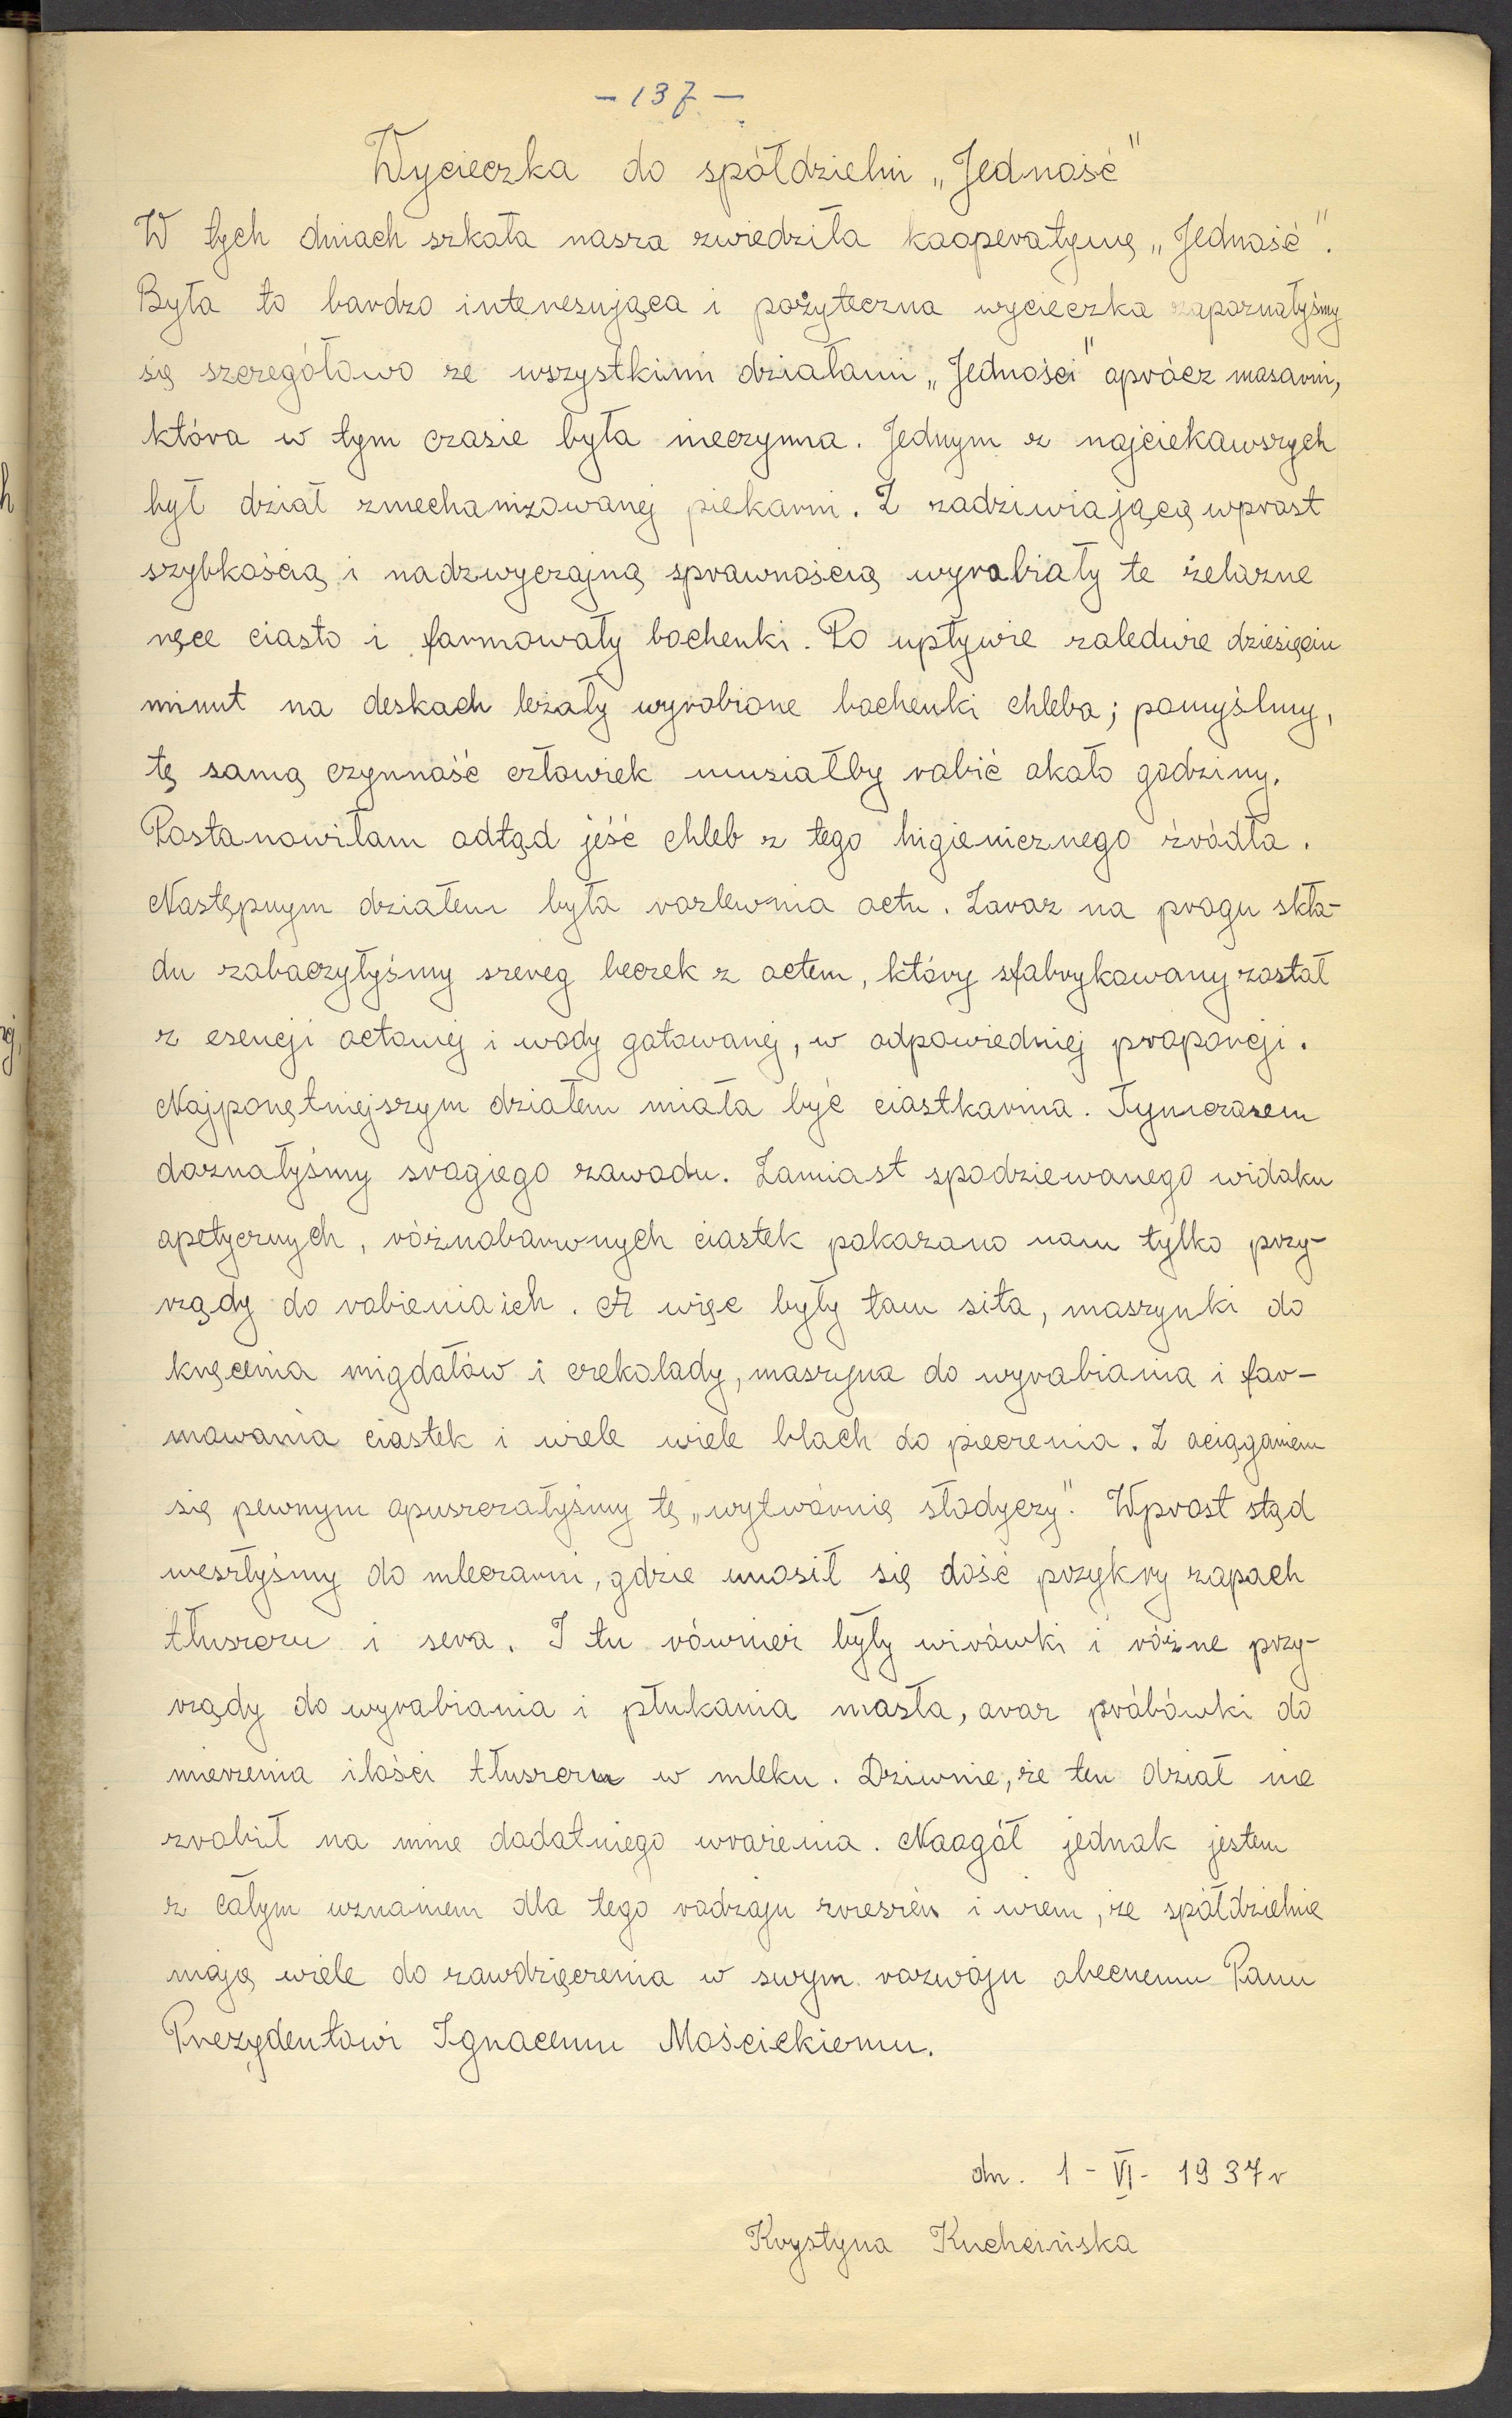 - 137 -
Wycieczka do spółdzielni „Jedność"
W tych dniach szkoła nasza zwiedziła kooperatywę „Jedność".
Była to bardzo interesująca i pożyteczna wycieczka zapoznałyśmy
się szczegółowo ze wszystkimi działami „Jedności" oprócz masarni,
która w tym czasie była nieczynna. Jednym z najciekawszych
był dział zmechanizowanej piekarni. Z zadziwiającą wprost
szybkością i nadzwyczajną sprawnością wyrabiały te żelazne
ręce ciasto i formowały bochenki. Po upływie zaledwie dziesięciu
minut na deskach leżały wyrobione bochenki chleba; pomyślmy,
tę samą czynność człowiek musiałby robić około godziny.
Postanowiłam odtąd jeść chleb z tego higienicznego źródła.
Następnym działem była rozlewnia octu. Zaraz na progu skła-
du zobaczyłyśmy szereg beczek z octem, który sfabrykowany został
z esencji octowej i wody gotowanej, w odpowiedniej proporcji.
Najponętniejszym działem miała być ciastkarnia. Tymczasem
doznałyśmy srogiego zawodu. Zamiast spodziewanego widoku
apetycznych, różnobarwnych ciastek pokazano nam tylko przy-
rządy do robienia ich. A więc były tam sita, maszynki do
kręcenia migdałów i czekolady, maszyna do wyrabiania i for-
mowania ciastek i wiele wiele blach do pieczenia. Z ociąganiem
się pewnym opuszczałyśmy tę „wytwórnię słodyczy". Wprost stąd
weszłyśmy do mleczarni, gdzie unosił się dość przykry zapach
tłuszczu i sera. I tu również były wirówki i różne przy-
rządy do wyrabiania i płukania masła, oraz próbówki do
mierzenia ilości tłuszczu w mleku. Dziwnie, że ten dział nie
zrobił na mnie dodatniego wrażenia. Naogół jednak jestem
z całym uznaniem dla tego rodzaju zrzeszeń i wiem, że spółdzielnie
mają wiele do zawdzięczenia w swym rozwoju obecnemu Panu
Prezydentowi Ignacemu Mościckiemu.
dn. 1 - VI - 1937 r
Krystyna Kuchcińska